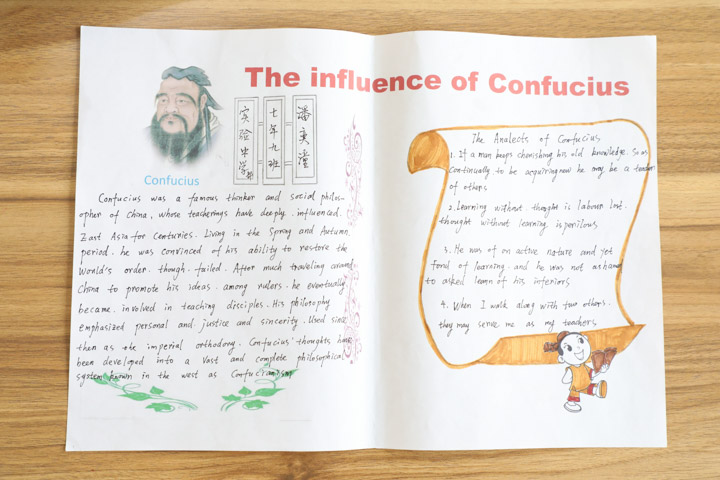 The influence of Confucius
实验中学部
七年九班
潘奕澄
Confucius
Confucius was a famous thinker and social philos-
opher of China, whose teacherings have deeply influenced
East Asia for centuries. Living in the Spring and Autumn
period. he was convinced of his ability to restore the
World's order. though. failed. After much traveling around
China to promote his ideas. among rulers. he eventually
became. involved in teaching disciples. His philosophy
emphasized personal and justice and sincerity. Used since
then as the imperial orthodoxy. Confucius' thoughts have
been developed into a vast and complete philosophical
system known in the west as Confucianism
The Analects of Confucius
1. If a man keeps cherishing his old knowledge. So as
continually to be acquiring new he may be a teacher
of others
2. Learning without thought is labour lost.
thought without learning is perilous
3. He was of an active nature and yet
fond of learning. and he was not ashamed
to asked learn of his inferiors
4. When I walk along with two others.
they may serve me as my teachers